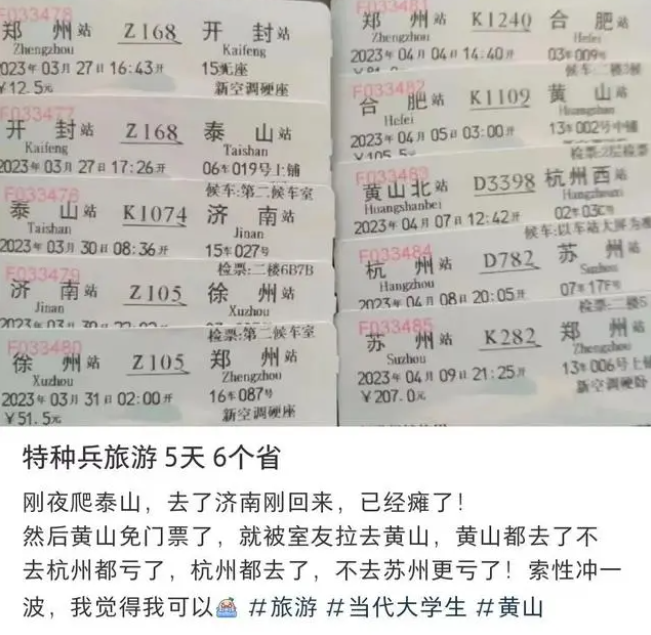 F033476
郑州站 Z168 开封站
Zhengzhou Kaifeng
2023年03月27日16:43开 15车无座
¥12.5元 新空调硬座
F033477
开封站 Z168 泰山站
Kaifeng Taishan
2023年03月27日17:26开 06车019号上铺
候车:第二候车室
F033478
泰山站 K1074 济南站
Taishan Jinan
2023年03月30日08:36开 15车027号
检票:二楼6B7B
F033479
济南站 Z105 徐州站
Jinan Xuzhou
检票:第二候车室
F033480
徐州站 Z105 郑州站
Xuzhou Zhengzhou
2023年03月31日02:00开 16车087号
¥51.5元 新空调硬座
F033481
郑州站 K1240 合肥站
Zhengzhou Hefei
2023年04月04日14:40开 03车009号
F033482
合肥站 K1109 黄山站
Hefei Huangshan
2023年04月05日03:00开 13车002号中铺
¥105.5元
F033483
黄山北站 D3398 杭州西站
Huangshanbei Hangzhouxi
2023年04月07日12:42开 02车03C号
F033484
杭州站 D782 苏州站
Hangzhou Suzhou
2023年04月08日20:05开 07车17F号
F033485
苏州站 K282 郑州站
Suzhou Zhengzhou
2023年04月09日21:25开 13车006号上铺
¥207.0元 新空调硬卧
特种兵旅游 5天 6个省
刚夜爬泰山，去了济南刚回来，已经瘫了！
然后黄山免门票了，就被室友拉去黄山，黄山都去了不
去杭州都亏了，杭州都去了，不去苏州更亏了！索性冲一
波，我觉得我可以 #旅游 #当代大学生 #黄山